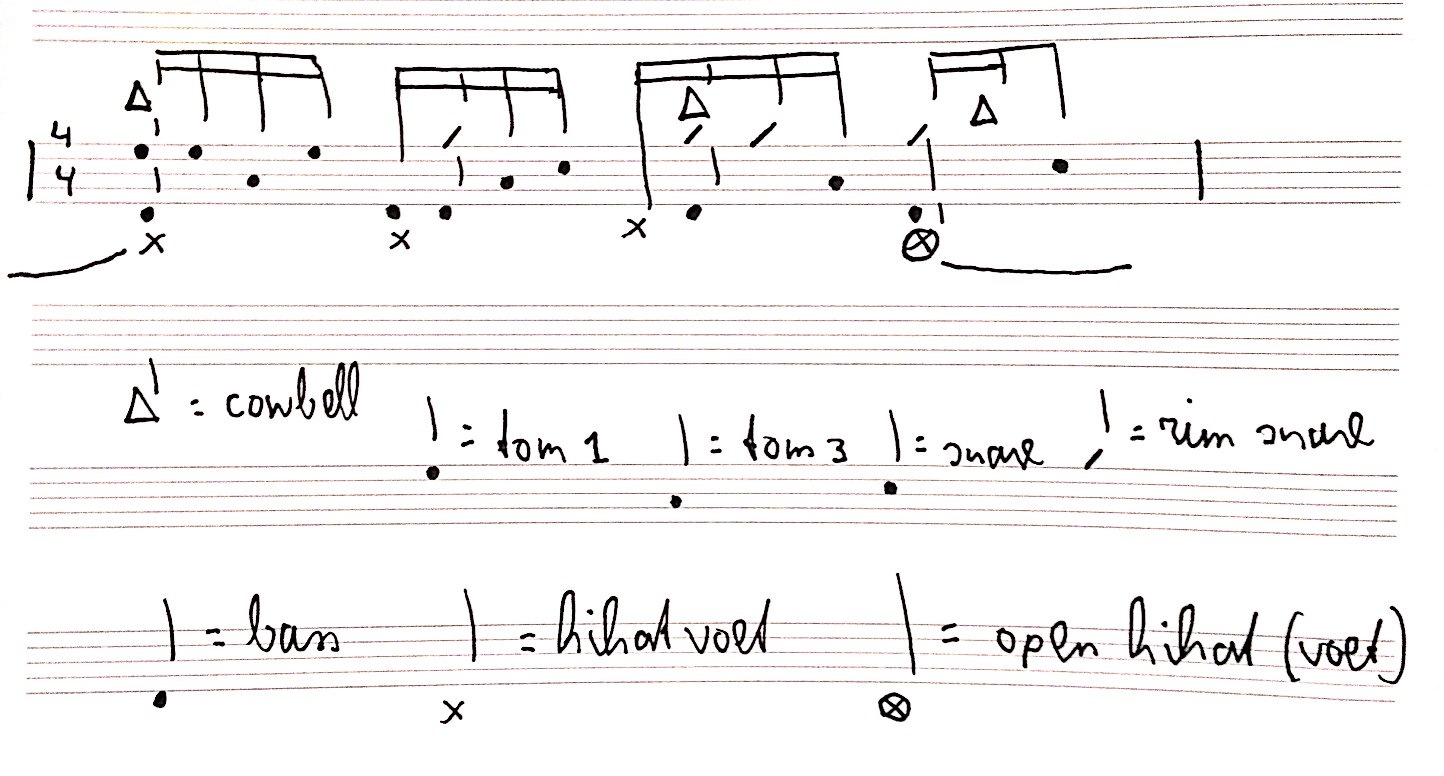 4
4
= cowbell
= tom 1 = tom 3 = snare = rim snare
= bass = hihat voet = open hihat (voet)